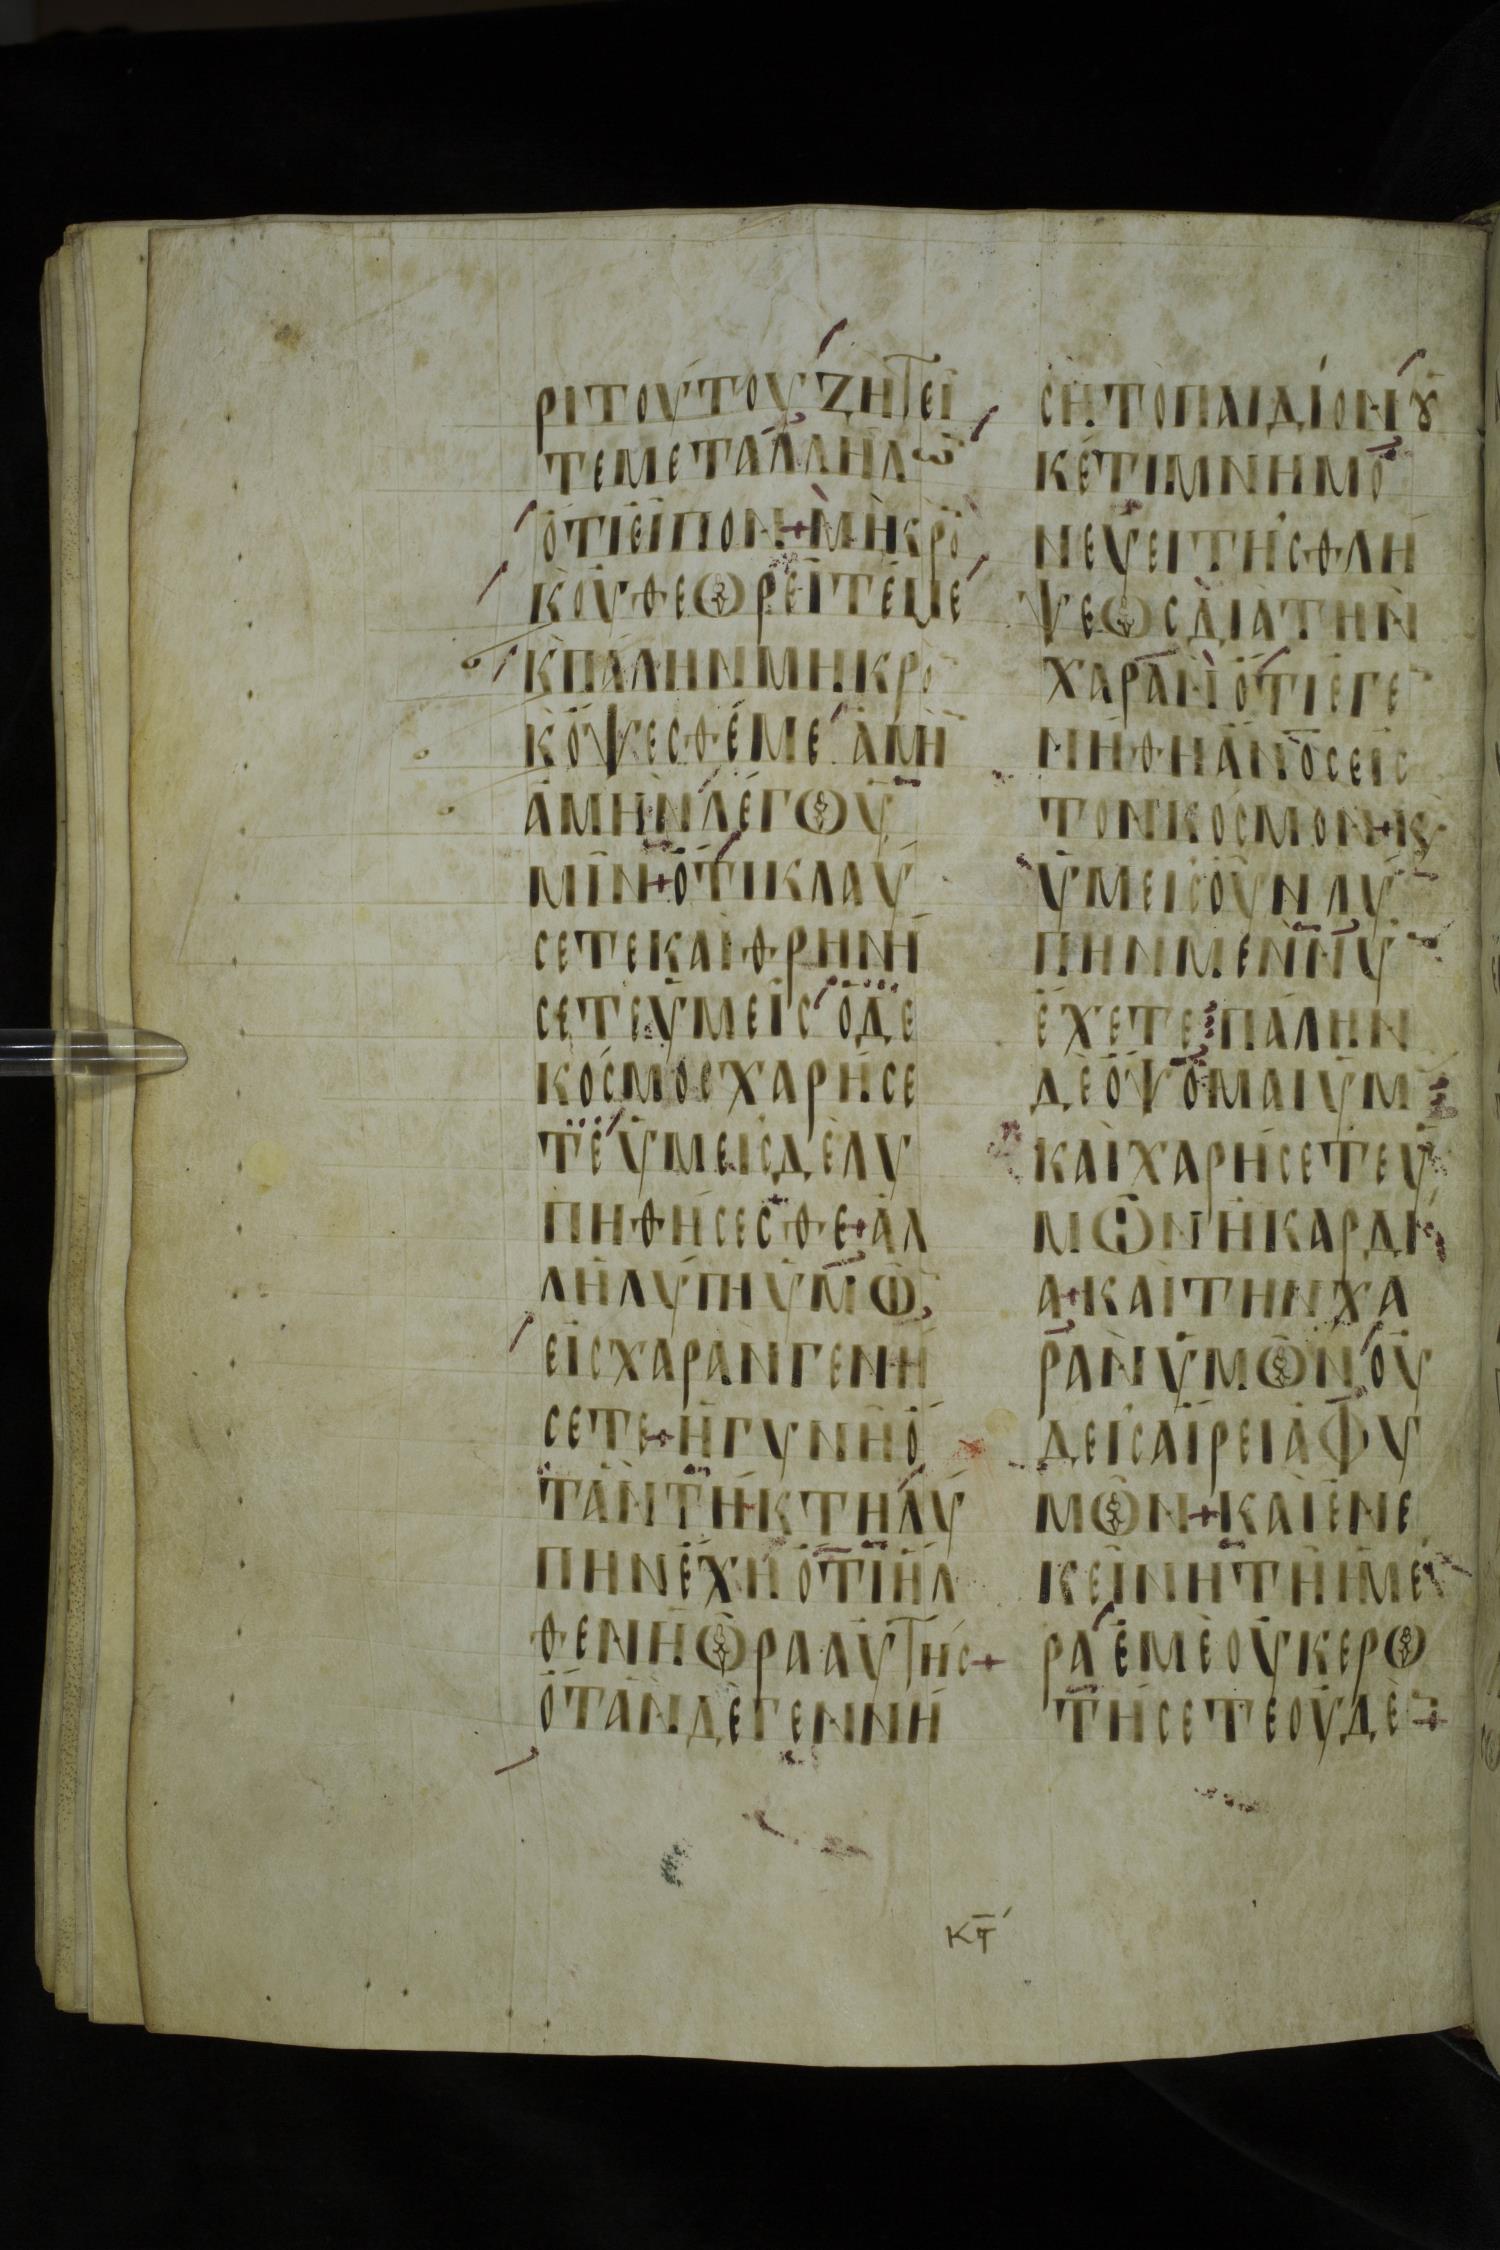 ΡΙΤΟΥΤΟΥΖΗΤΕΙ
ΤΕΜΕΤΑΛΛΗΛω
ΟΤΙΕΙΠΟΝ+ΜΗΚΡΟ
ΚΟΥΘΕΩΡΕΙΤΕΜΕ
ΚΠΑΛΗΝΜΗΚΡΟ
ΚΟΨΕΣΘΕΜΕ ΑΜΗ
ΑΜΗΝΛΕΓΩΥ
ΜΙΝ+ΟΤΙΚΛΑΥ
ΣΕΤΕΚΑΙΘΡΗΝΗ
ΣΕΤΕΥΜΕΙΣ ΟΔΕ
ΚΟΣΜΟΣΧΑΡΗΣΕ
ΤΕΥΜΕΙΣΔΕΛΥ
ΠΗΘΗΣΕΣΘΕ+ΑΛ
ΛΗΛΥΠΗΥΜΩ
ΕΙΣΧΑΡΑΝΓΕΝΗ
ΣΕΤΕ+ΗΓΥΝΗΟ
ΤΑΝΤΗΚΤΗΛΥ
ΠΗΝΕΧΗΟΤΙΗΛ
ΘΕΝΗΩΡΑΑΥΤΗΣ+
ΟΤΑΝΔΕΓΕΝΝΗ
ΣΗΤΟΠΑΙΔΙΟΝȣ
ΚΕΤΙΜΝΗΜΟ
ΝΕΥΕΙΤΗΣΘΛΗ
ΨΕΩΣΔΙΑΤΗΝ
ΧΑΡΑΝΟΤΙΕΓΕ
ΝΗΘΗΑΝΟΣΕΙΣ
ΤΟΝΚΟΣΜΟΝ+Κ
ΥΜΕΙΣΟΥΝΛΥ
ΠΗΝΜΕΝΝΥ
ΕΧΕΤΕ ΠΑΛΗΝ
ΔΕΟΨΟΜΑΙΥΜ
ΚΑΙΧΑΡΗΣΕΤΕΥ
ΜΩΝΗΚΑΡΔΙ
Α+ΚΑΙΤΗΝΧΑ
ΡΑΝΥΜΩΝΟΥ
ΔΕΙΣΑΙΡΕΙΑΦΥ
ΜΩΝ+ΚΑΙΕΝΕ
ΚΕΙΝΗΤΗΗΜΕ
ΡΑΕΜΕΟΥΚΕΡΩ
ΤΗΣΕΤΕΟΥΔΕ+